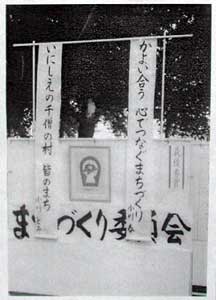 かよい合う 心でつなぐまちづくり
いにしえの千僧の村 皆のまち
まちづくり委員会